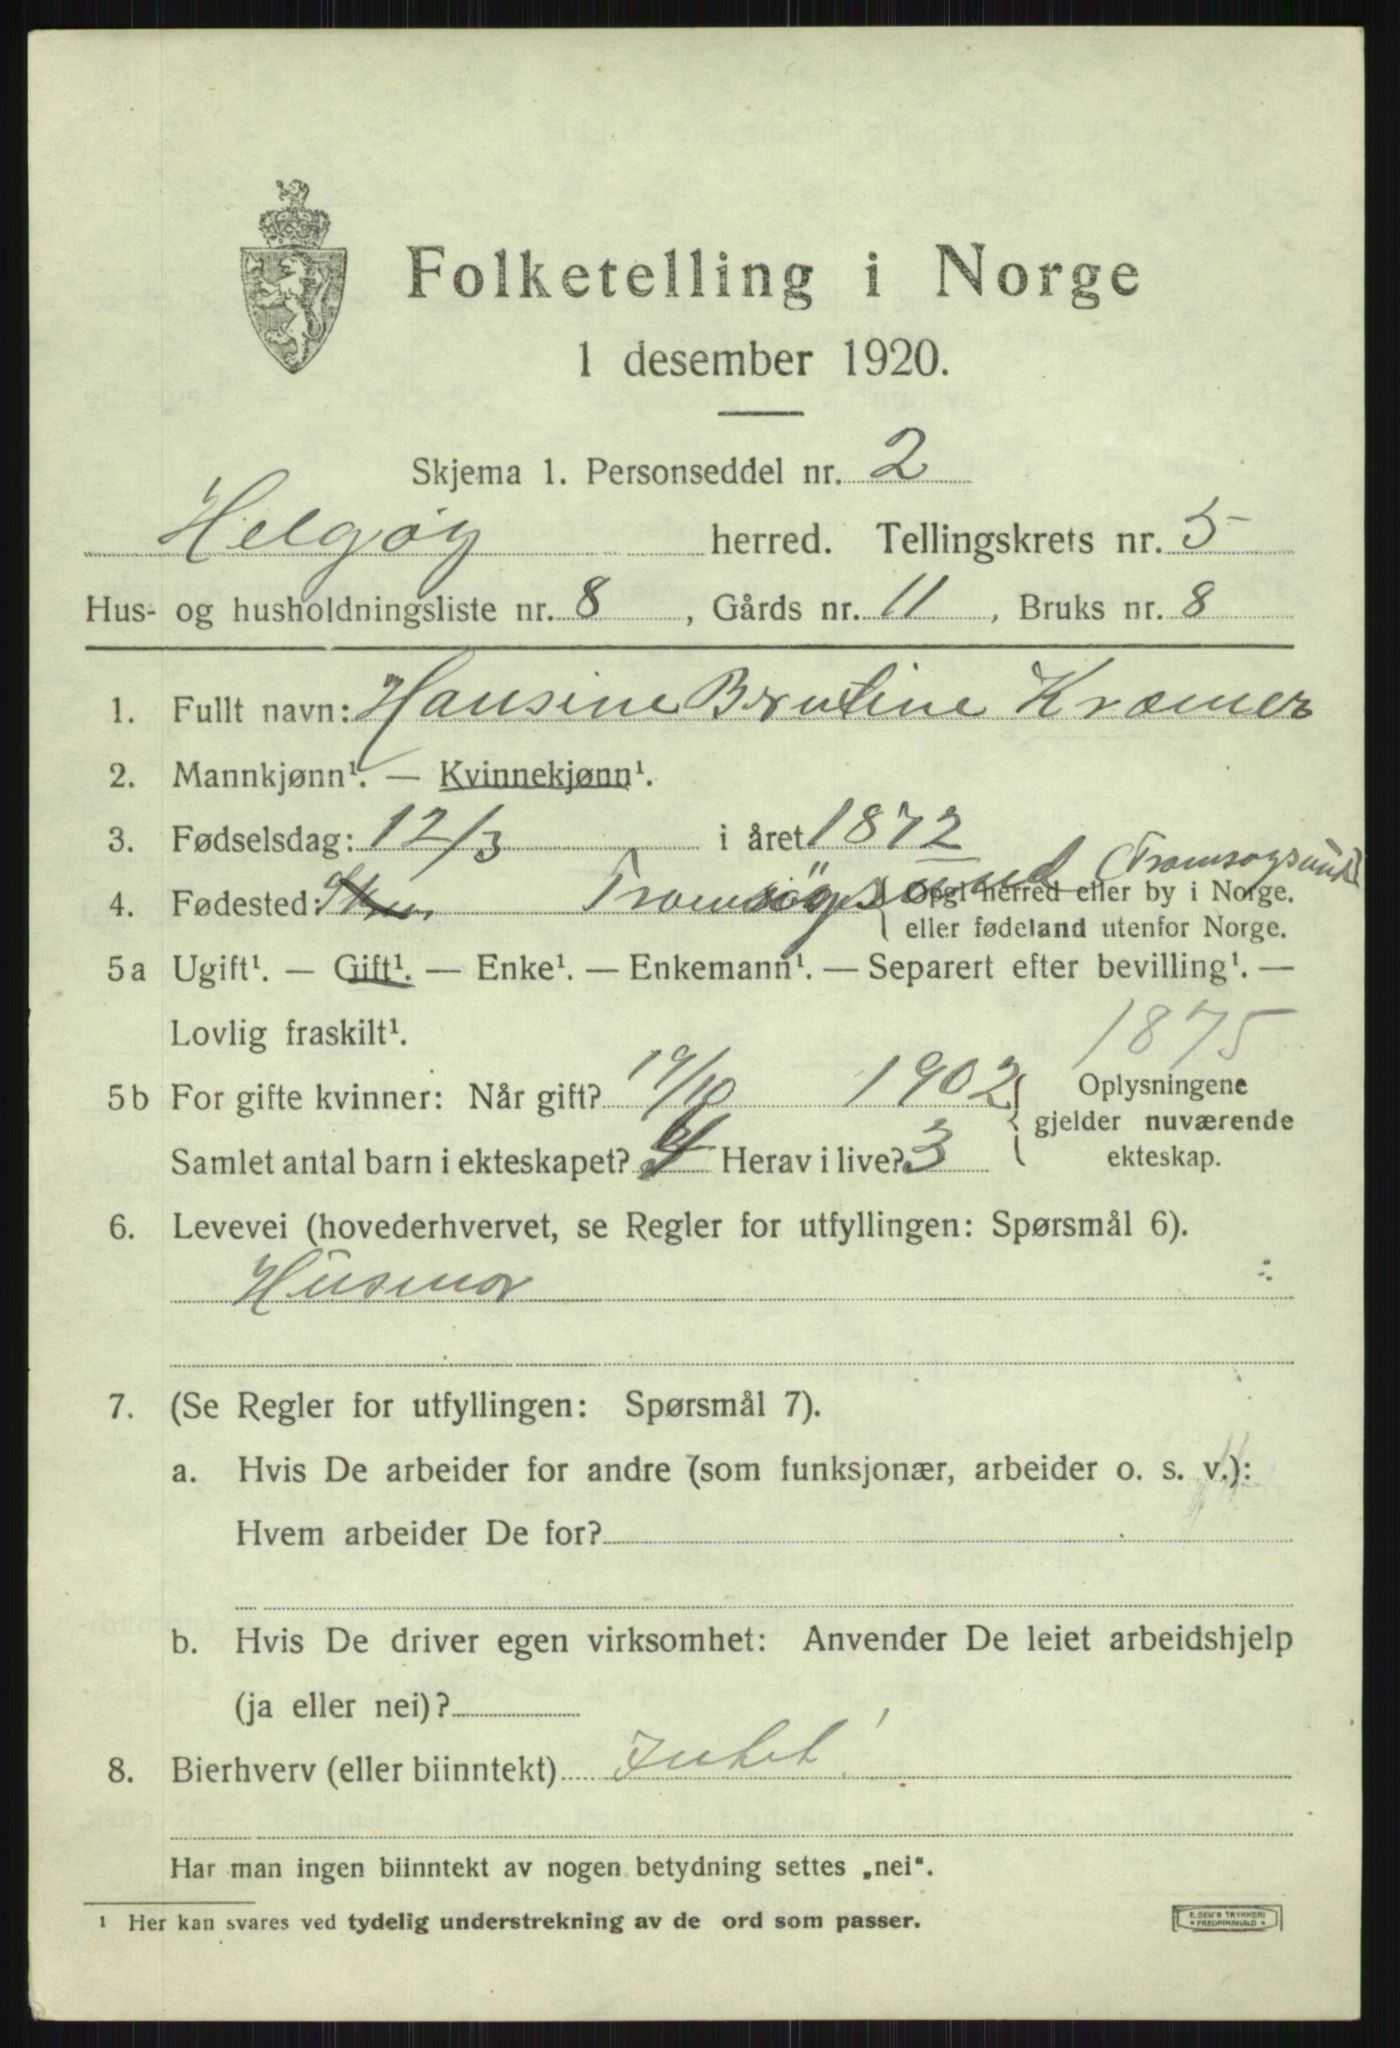 Folketelling i Norge
1 desember 1920.
Skjema 1. Personseddel nr. 2
Helgøy herred. Tellingskrets nr. 5
Hus- og husholdningsliste nr. 8, Gårds nr. 11, Bruks nr. 8
1. Fullt navn: Hansine Brutine Kræmer
2. Mannkjønn¹. — Kvinnekjønn¹.
3. Fødselsdag: 12/3 i året 1872
4. Fødested: Tromsøysund (Tromsøysund)
{ Opgi herred eller by i Norge.
eller fødeland utenfor Norge.
5a Ugift¹. — Gift¹. — Enke¹. — Enkemann¹. — Separert efter bevilling¹. —
Lovlig fraskilt¹.
1875
5b For gifte kvinner: Når gift? 19/10 1902
Samlet antal barn i ekteskapet? Herav i live? 3
{ Oplysningene
gjelder nuværende
ekteskap.
6. Levevei (hovederhvervet, se Regler for utfyllingen: Spørsmål 6).
Husmor
7. (Se Regler for utfyllingen: Spørsmål 7).
a. Hvis De arbeider for andre (som funksjonær, arbeider o. s. v.):
Hvem arbeider De for?
b. Hvis De driver egen virksomhet: Anvender De leiet arbeidshjelp
(ja eller nei)?
8. Bierhverv (eller biinntekt) Intet!
Har man ingen biinntekt av nogen betydning settes „nei“.
¹ Her kan svares ved tydelig understrekning av de ord som passer.
E. SEM'S TRYKKERI
* FREDRIKSHALD *